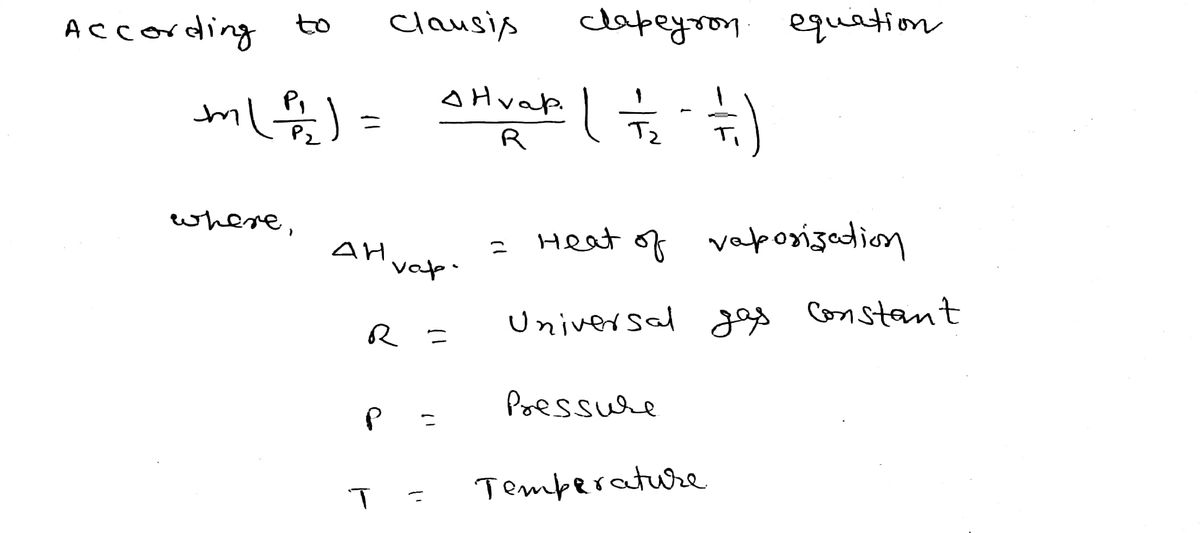 According to Clausis clapeyron equation
ln(P₁/P₂) = ΔHvap./R (1/T₂ - 1/T₁)
where,
ΔHvap. = Heat of vaporization
R = Universal gas Constant
P = Pressure
T = Temperature